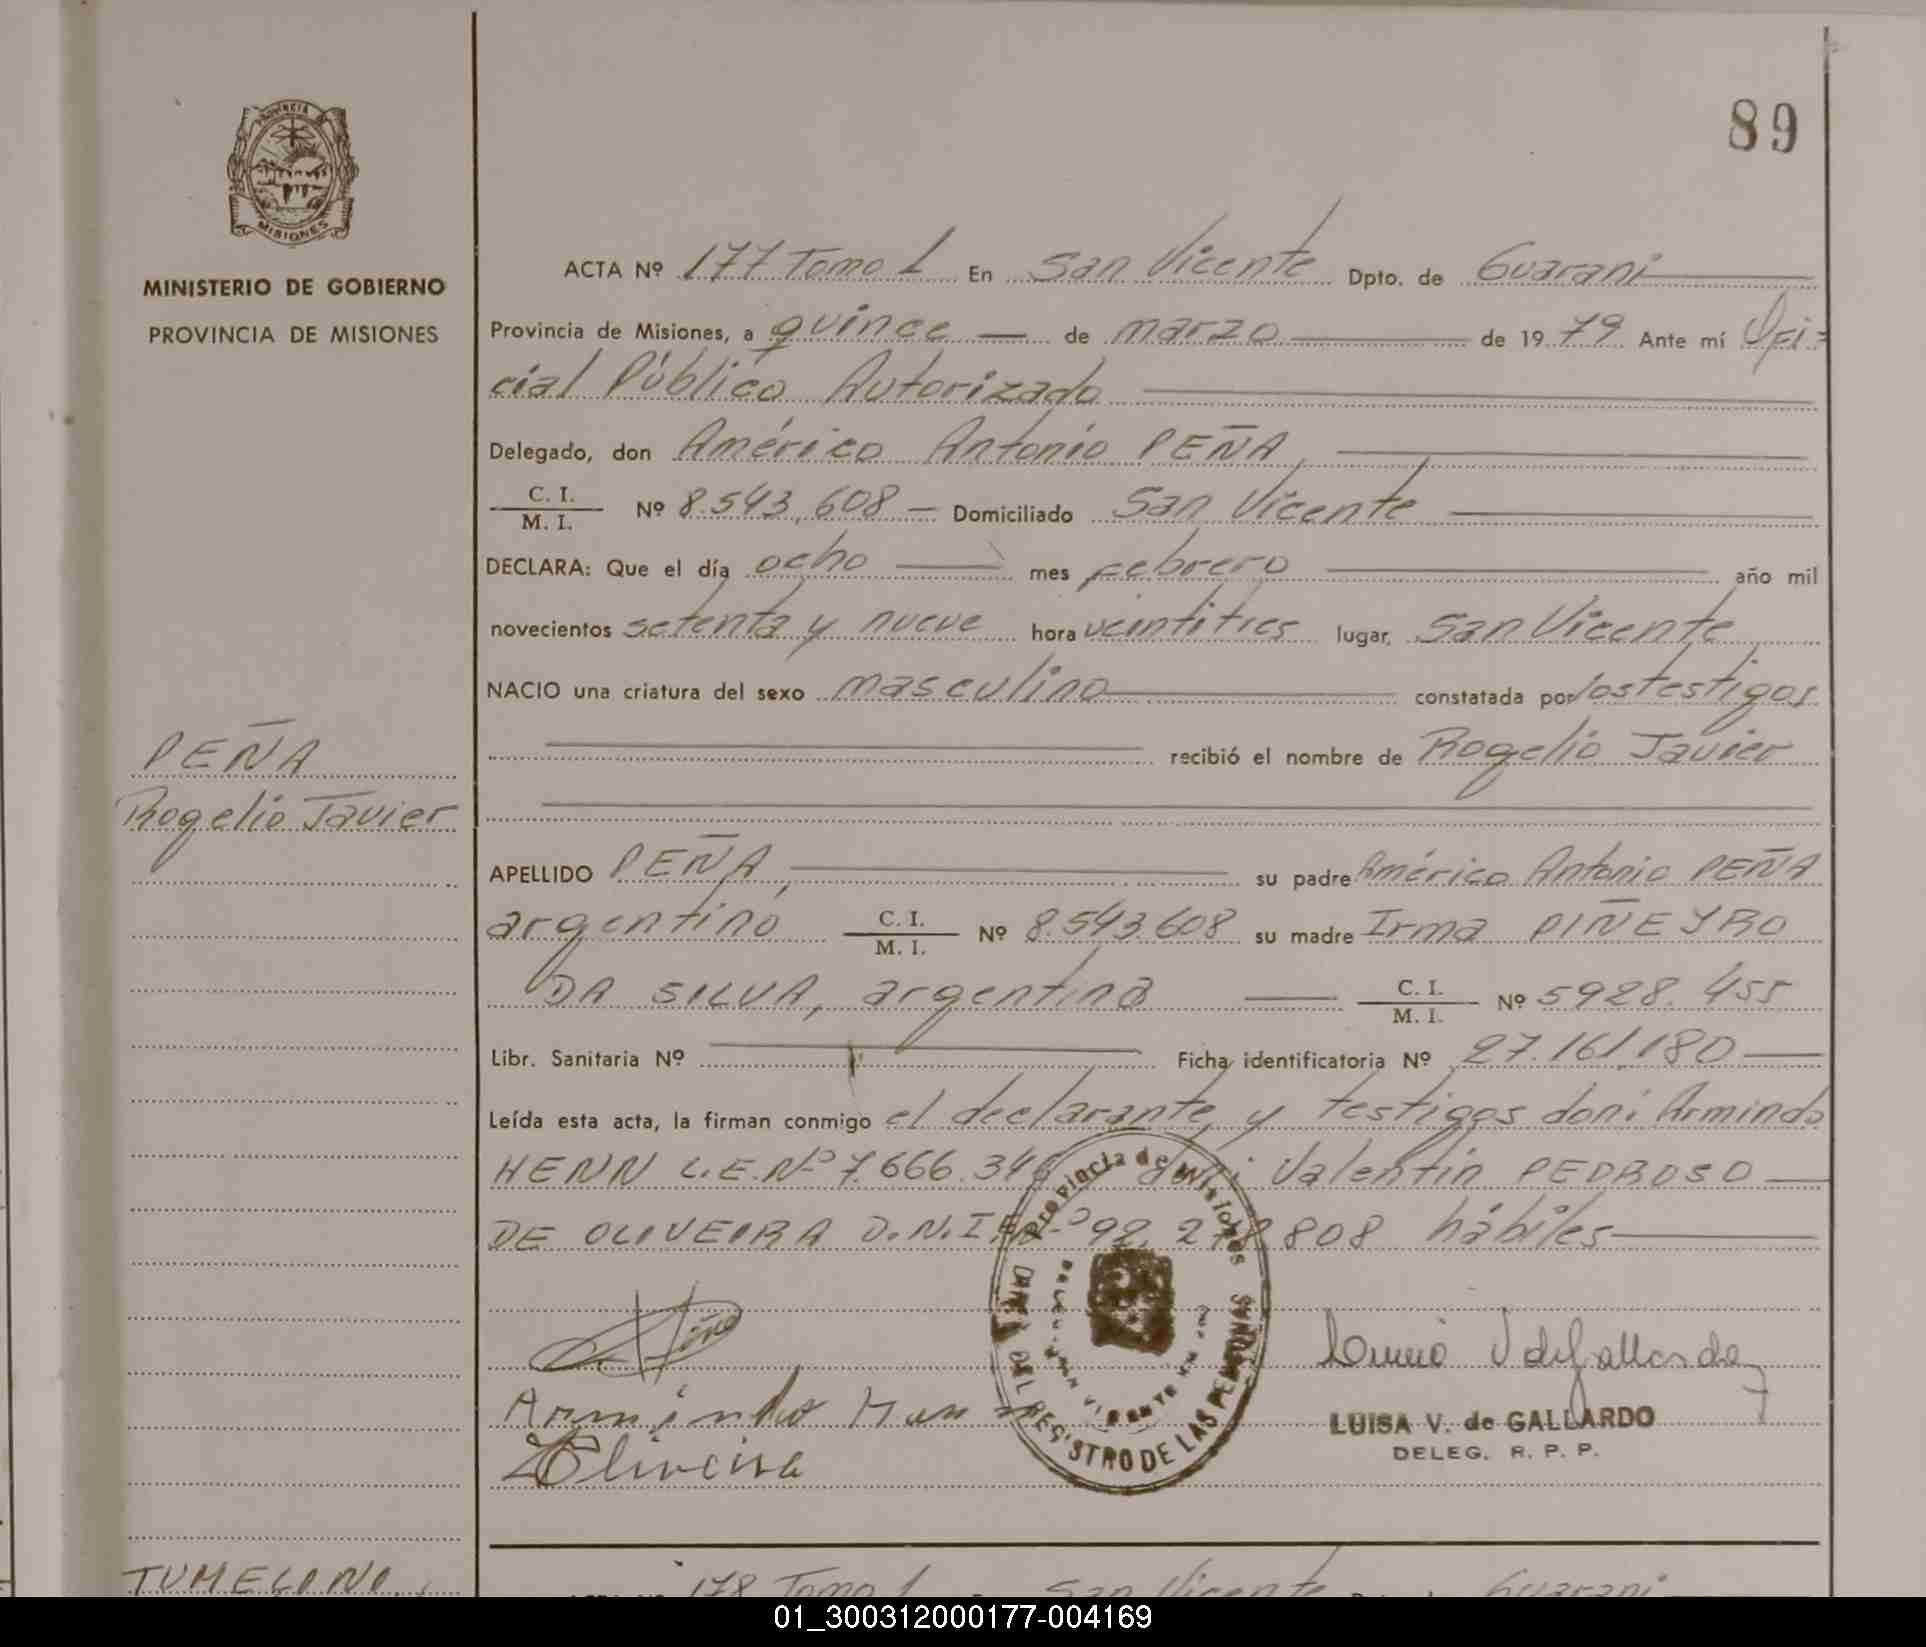 PROVINCIA
MISIONES
MINISTERIO DE GOBIERNO
PROVINCIA DE MISIONES
89
ACTA Nº 177 Tomo I En San Vicente Dpto. de Guaraní
Provincia de Misiones, a quince de marzo de 1979 Ante mí Ofi=
cial Público Autorizado
Delegado, don Américo Antonio PEÑA,
C. I. / M. I. Nº 8.543.608 — Domiciliado San Vicente
DECLARA: Que el día ocho mes febrero año mil
novecientos setenta y nueve hora veintitres lugar, San Vicente
NACIO una criatura del sexo masculino constatada por los testigos
recibió el nombre de Rogelio Javier
PEÑA
Rogelio Javier
APELLIDO PEÑA, su padre Américo Antonio PEÑA
argentino C. I. / M. I. Nº 8.543.608 su madre Irma PIÑEYRO
DA SILVA, argentina C. I. / M. I. Nº 5928.455
Libr. Sanitaria Nº Ficha identificatoria Nº 27.161.180
Leída esta acta, la firman conmigo el declarante y testigos don: Armindo
HENN L.E.Nº 7.666.346 don: Valentín PEDROSO
DE OLIVEIRA D.N.I.Nº 92.278.808 hábiles
Provincia de Misiones
DEL REGISTRO DE LAS PERSONAS
Armindo Henn
Oliveira
LUISA V. de GALLARDO
DELEG. R. P. P.
178 Tomo I San Vicente Guaraní
01_300312000177-004169